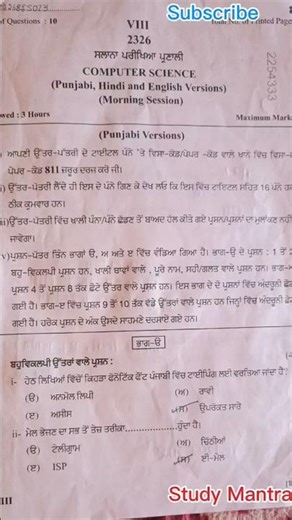 Subscribe
of Questions : 10
VIII
Printed Pages
2326
ਸਲਾਨਾ ਪਰੀਖਿਆ ਪ੍ਰਣਾਲੀ
2254333
COMPUTER SCIENCE
(Punjabi, Hindi and English Versions)
(Morning Session)
wed : 3 Hours
Maximum Mark
(Punjabi Versions)
ਆਪਣੀ ਉੱਤਰ-ਪੱਤਰੀ ਦੇ ਟਾਈਟਲ ਪੰਨੇ 'ਤੇ ਵਿਸ਼ਾ-ਕੋਡ/ਪੇਪਰ -ਕੋਡ ਵਾਲੇ ਖਾਨੇ ਵਿੱਚ ਵਿਸ਼ਾ-
ਪੇਪਰ -ਕੋਡ 811 ਜ਼ਰੂਰ ਦਰਜ ਕਰੋ ਜੀ।
i) ਉੱਤਰ-ਪੱਤਰੀ ਲੈਂਦੇ ਹੀ ਇਸ ਦੇ ਪੰਨੇ ਗਿਣ ਕੇ ਦੇਖ ਲਓ ਕਿ ਇਸ ਵਿੱਚ ਟਾਇਟਿਲ ਸਹਿਤ 16 ਪੰਨੇ
ਠੀਕ ਕ੍ਰਮਵਾਰ ਹਨ।
ii) ਉੱਤਰ-ਪੱਤਰੀ ਵਿੱਚ ਖਾਲੀ ਪੰਨਾ/ਪੰਨੇ ਛੱਡਣ ਤੋਂ ਬਾਅਦ ਹੱਲ ਕੀਤੇ ਗਏ ਪ੍ਰਸ਼ਨ/ਪ੍ਰਸ਼ਨਾਂ ਦਾ ਮੁਲਾਂਕਣ ਨਹੀਂ
ਜਾਵੇਗਾ।
v) ਪ੍ਰਸ਼ਨ-ਪੱਤਰ ਤਿੰਨ ਭਾਗਾਂ ੳ, ਅ ਅਤੇ ੲ ਵਿੱਚ ਵੰਡਿਆ ਗਿਆ ਹੈ। ਭਾਗ-ੳ ਦੇ ਪ੍ਰਸ਼ਨ : 1 ਤੋਂ
ਬਹੁ-ਵਿਕਲਪੀ ਪ੍ਰਸ਼ਨ ਹਨ, ਖਾਲੀ ਥਾਵਾਂ ਵਾਲੇ , ਪੂਰੇ ਨਾਮ, ਸਹੀ/ਗਲਤ ਵਾਲੇ ਪ੍ਰਸ਼ਨ ਹਨ। ਭਾਗ-
ਪ੍ਰਸ਼ਨ 4 ਤੋਂ ਪ੍ਰਸ਼ਨ 8 ਤੱਕ ਛੋਟੇ ਉੱਤਰ ਵਾਲੇ ਪ੍ਰਸ਼ਨ ਹਨ। ਇਸ ਭਾਗ ਦੇ ਦੋ ਪ੍ਰਸ਼ਨਾਂ ਵਿੱਚ ਅੰਦਰੂਨੀ ਛੋਟ
ਗਈ ਹੈ। ਭਾਗ-ੲ ਵਿੱਚ ਪ੍ਰਸ਼ਨ 9 ਤੋਂ 10 ਤੱਕ ਵੱਡੇ ਉੱਤਰਾਂ ਵਾਲੇ ਪ੍ਰਸ਼ਨ ਹਨ ਜਿਨ੍ਹਾਂ ਵਿੱਚ ਅੰਦਰੂਨੀ ਛੋਟ
ਗਈ ਹੈ। ਹਰੇਕ ਪ੍ਰਸ਼ਨ ਦੇ ਅੰਕ ਉਸਦੇ ਸਾਹਮਣੇ ਦਰਸਾਏ ਗਏ ਹਨ।
ਭਾਗ-ੳ
ਬਹੁਵਿਕਲਪੀ ਉੱਤਰਾਂ ਵਾਲੇ ਪ੍ਰਸ਼ਨ :
i- ਹੇਠ ਲਿਖਿਆਂ ਵਿੱਚੋਂ ਕਿਹੜਾ ਫੋਨੈਟਿਕ ਫੌਂਟ ਪੰਜਾਬੀ ਵਿੱਚ ਟਾਈਪਿੰਗ ਲਈ ਵਰਤਿਆ ਜਾਂਦਾ ਹੈ?
(ੳ) ਅਨਮੋਲ ਲਿਪੀ (ਅ) ਰਾਵੀ
(ੲ) ਅਸੀਸ (ਸ) ਉਪਰੋਕਤ ਸਾਰੇ
ii- ਮੇਲ ਭੇਜਣ ਦਾ ਸਭ ਤੋਂ ਤੇਜ਼ ਤਰੀਕਾ....................ਹੁੰਦਾ ਹੈ।
(ੳ) ਟੈਲੀਗ੍ਰਾਮ (ਅ) ਚਿੱਠੀਆਂ
(ੲ) ISP (ਸ) ਈ-ਮੇਲ
III
Study Mantra